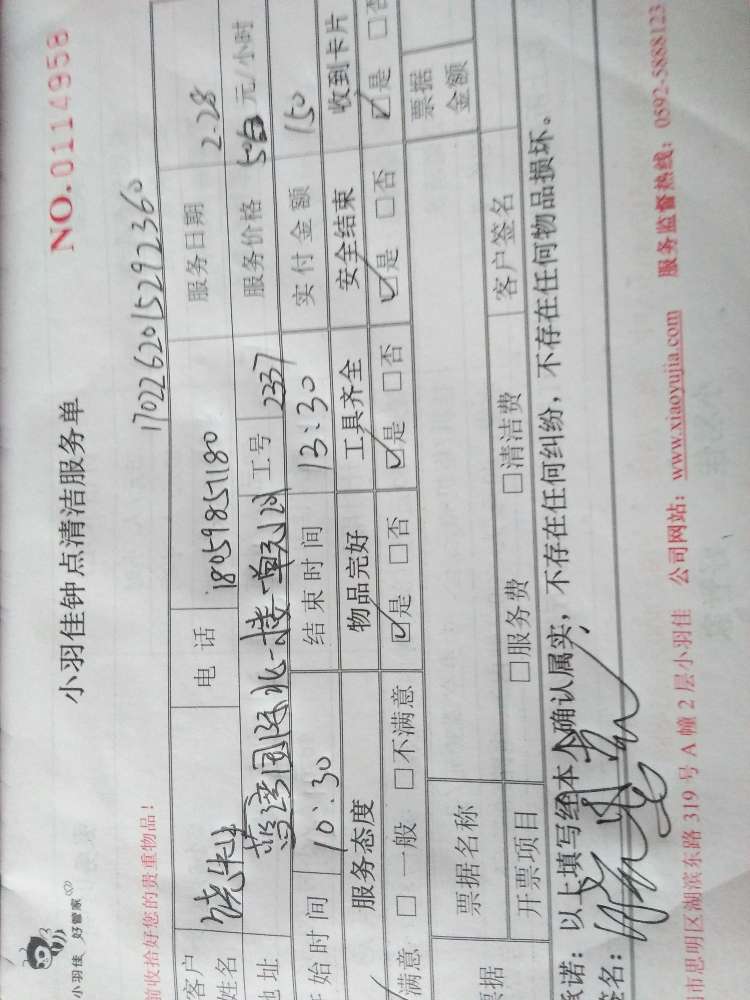 小羽佳 好管家
小羽佳钟点清洁服务单
NO.0114958
前收拾好您的贵重物品!
1702262015292360
客户姓名 饶先生 电 话 18059851180 服务日期 2-28
地址 蓝湾国际北一楼一单元 工号 2337 服务价格 50 元/小时
始时间 10:30 结束时间 13:30 实付金额 150
服务态度 物品完好 工具齐全 安全结束 收到卡片
满意 □ 一般 □不满意 ☑是 □否 ☑是 □否 ☑是 □否 ☑是 □否
票据名称 票据金额
票据 开票项目 □服务费 □清洁费 客户签名
承诺:以上填写经本人确认属实,不存在任何纠纷,不存在任何物品损坏。
签名:
市思明区湖滨东路 319 号 A 幢 2 层小羽佳 公司网站:www.xiaoyujia.com 服务监督热线:0592-5888123